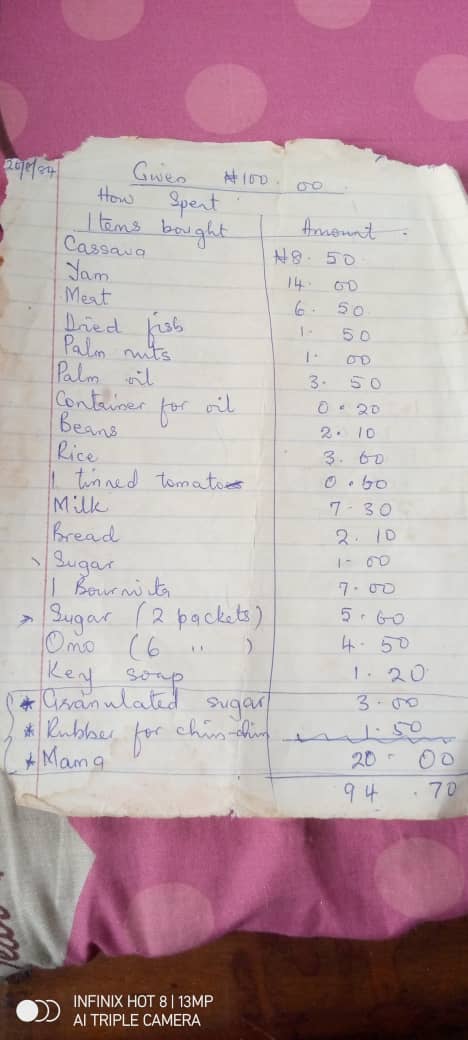 20/8/84
Given ₦100.00
How Spent
Items bought Amount.
Cassava ₦8.50
Yam 14.00
Meat 6.50
Dried fish 1.50
Palm nuts 1.00
Palm oil 3.50
Container for oil 0.20
Beans 2.10
Rice 3.60
1 tinned tomato 0.60
Milk 7.30
Bread 2.10
Sugar 1-00
1 Bournvita 7.00
Sugar (2 packets) 5.60
Omo (6 " ) 4.50
Key soap 1.20
* Granulated sugar 3.00
* Rubber for chin-chin 1.50
* Mama 20.00
94.70
INFINIX HOT 8 | 13MP
AI TRIPLE CAMERA